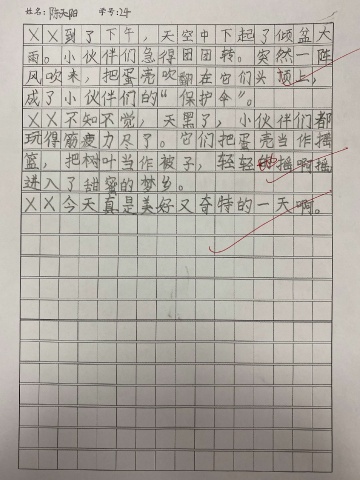 姓名：陈天阳 学号：24
XX到了下午，天空中下起了倾盆大
雨。小伙伴们急得团团转。突然一阵
风吹来，把蛋壳吹翻在它们头顶上，
成了小伙伴们的“保护伞”。
XX不知不觉，天黑了，小伙伴们都
玩得筋疲力尽了。它们把蛋壳当作摇
篮，把树叶当作被子，轻轻地摇啊摇
进入了甜蜜的梦乡。
XX今天真是美好又奇特的一天啊。